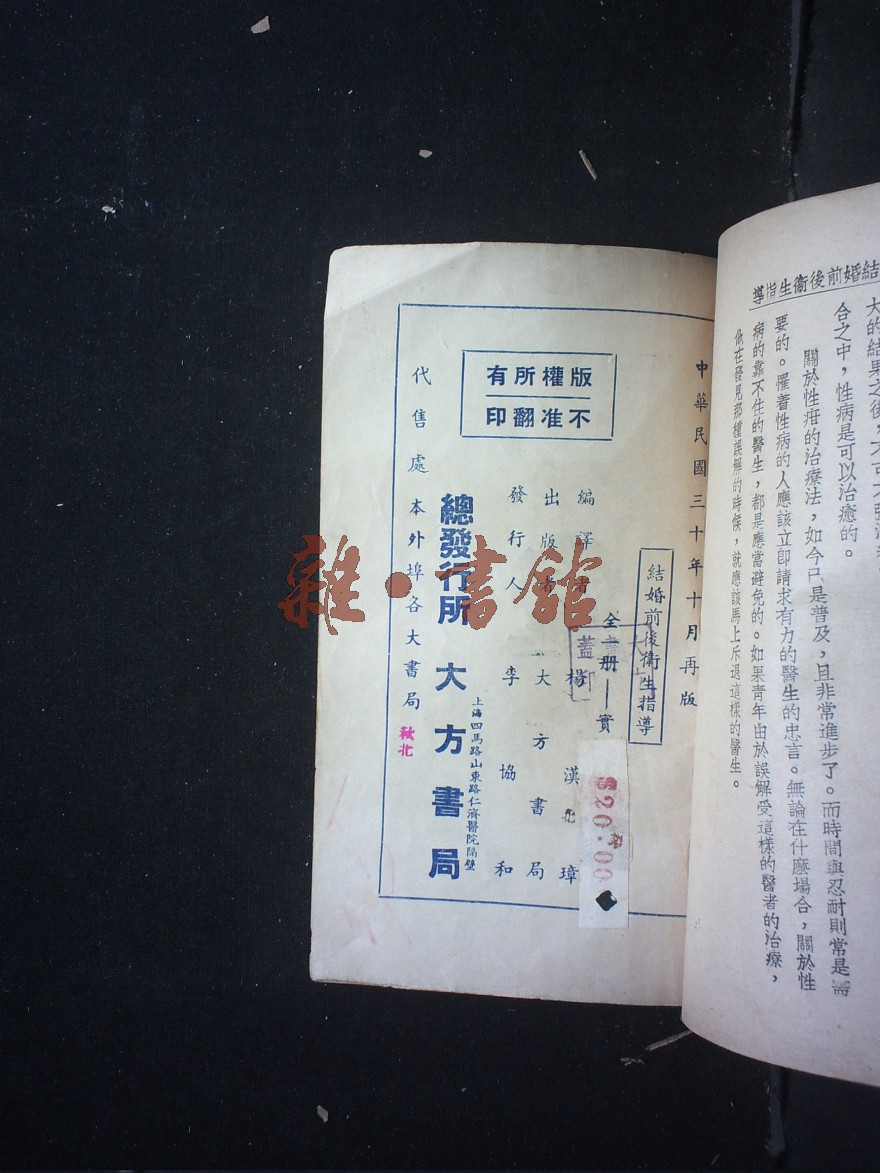 結婚前後衛生指導
合之中，性病是可以治癒的。
關於性疳的治療法，如今已是普及，且非常進步了。而時間與忍耐則常是需
要的。罹着性病的人應該立卽請求有力的醫生的忠言。無論在什麼場合，關於性
病的靠不住的醫生，都是應當避免的。如果靑年由於誤解受這樣的醫者的治療，
他在發見那種誤解的時候，就應該馬上斥退這樣的醫生。
中華民國三十年十月再版
結婚前後衛生指導
全書一册——實
$20.00
編譯者 楊漢璋
出版者 大方書局
發行人 李協和
上海四馬路山東路仁濟醫院隔壁
總發行所 大方書局
代售處 本外埠各大書局
秋北
版權所有
不准翻印
雜·書館